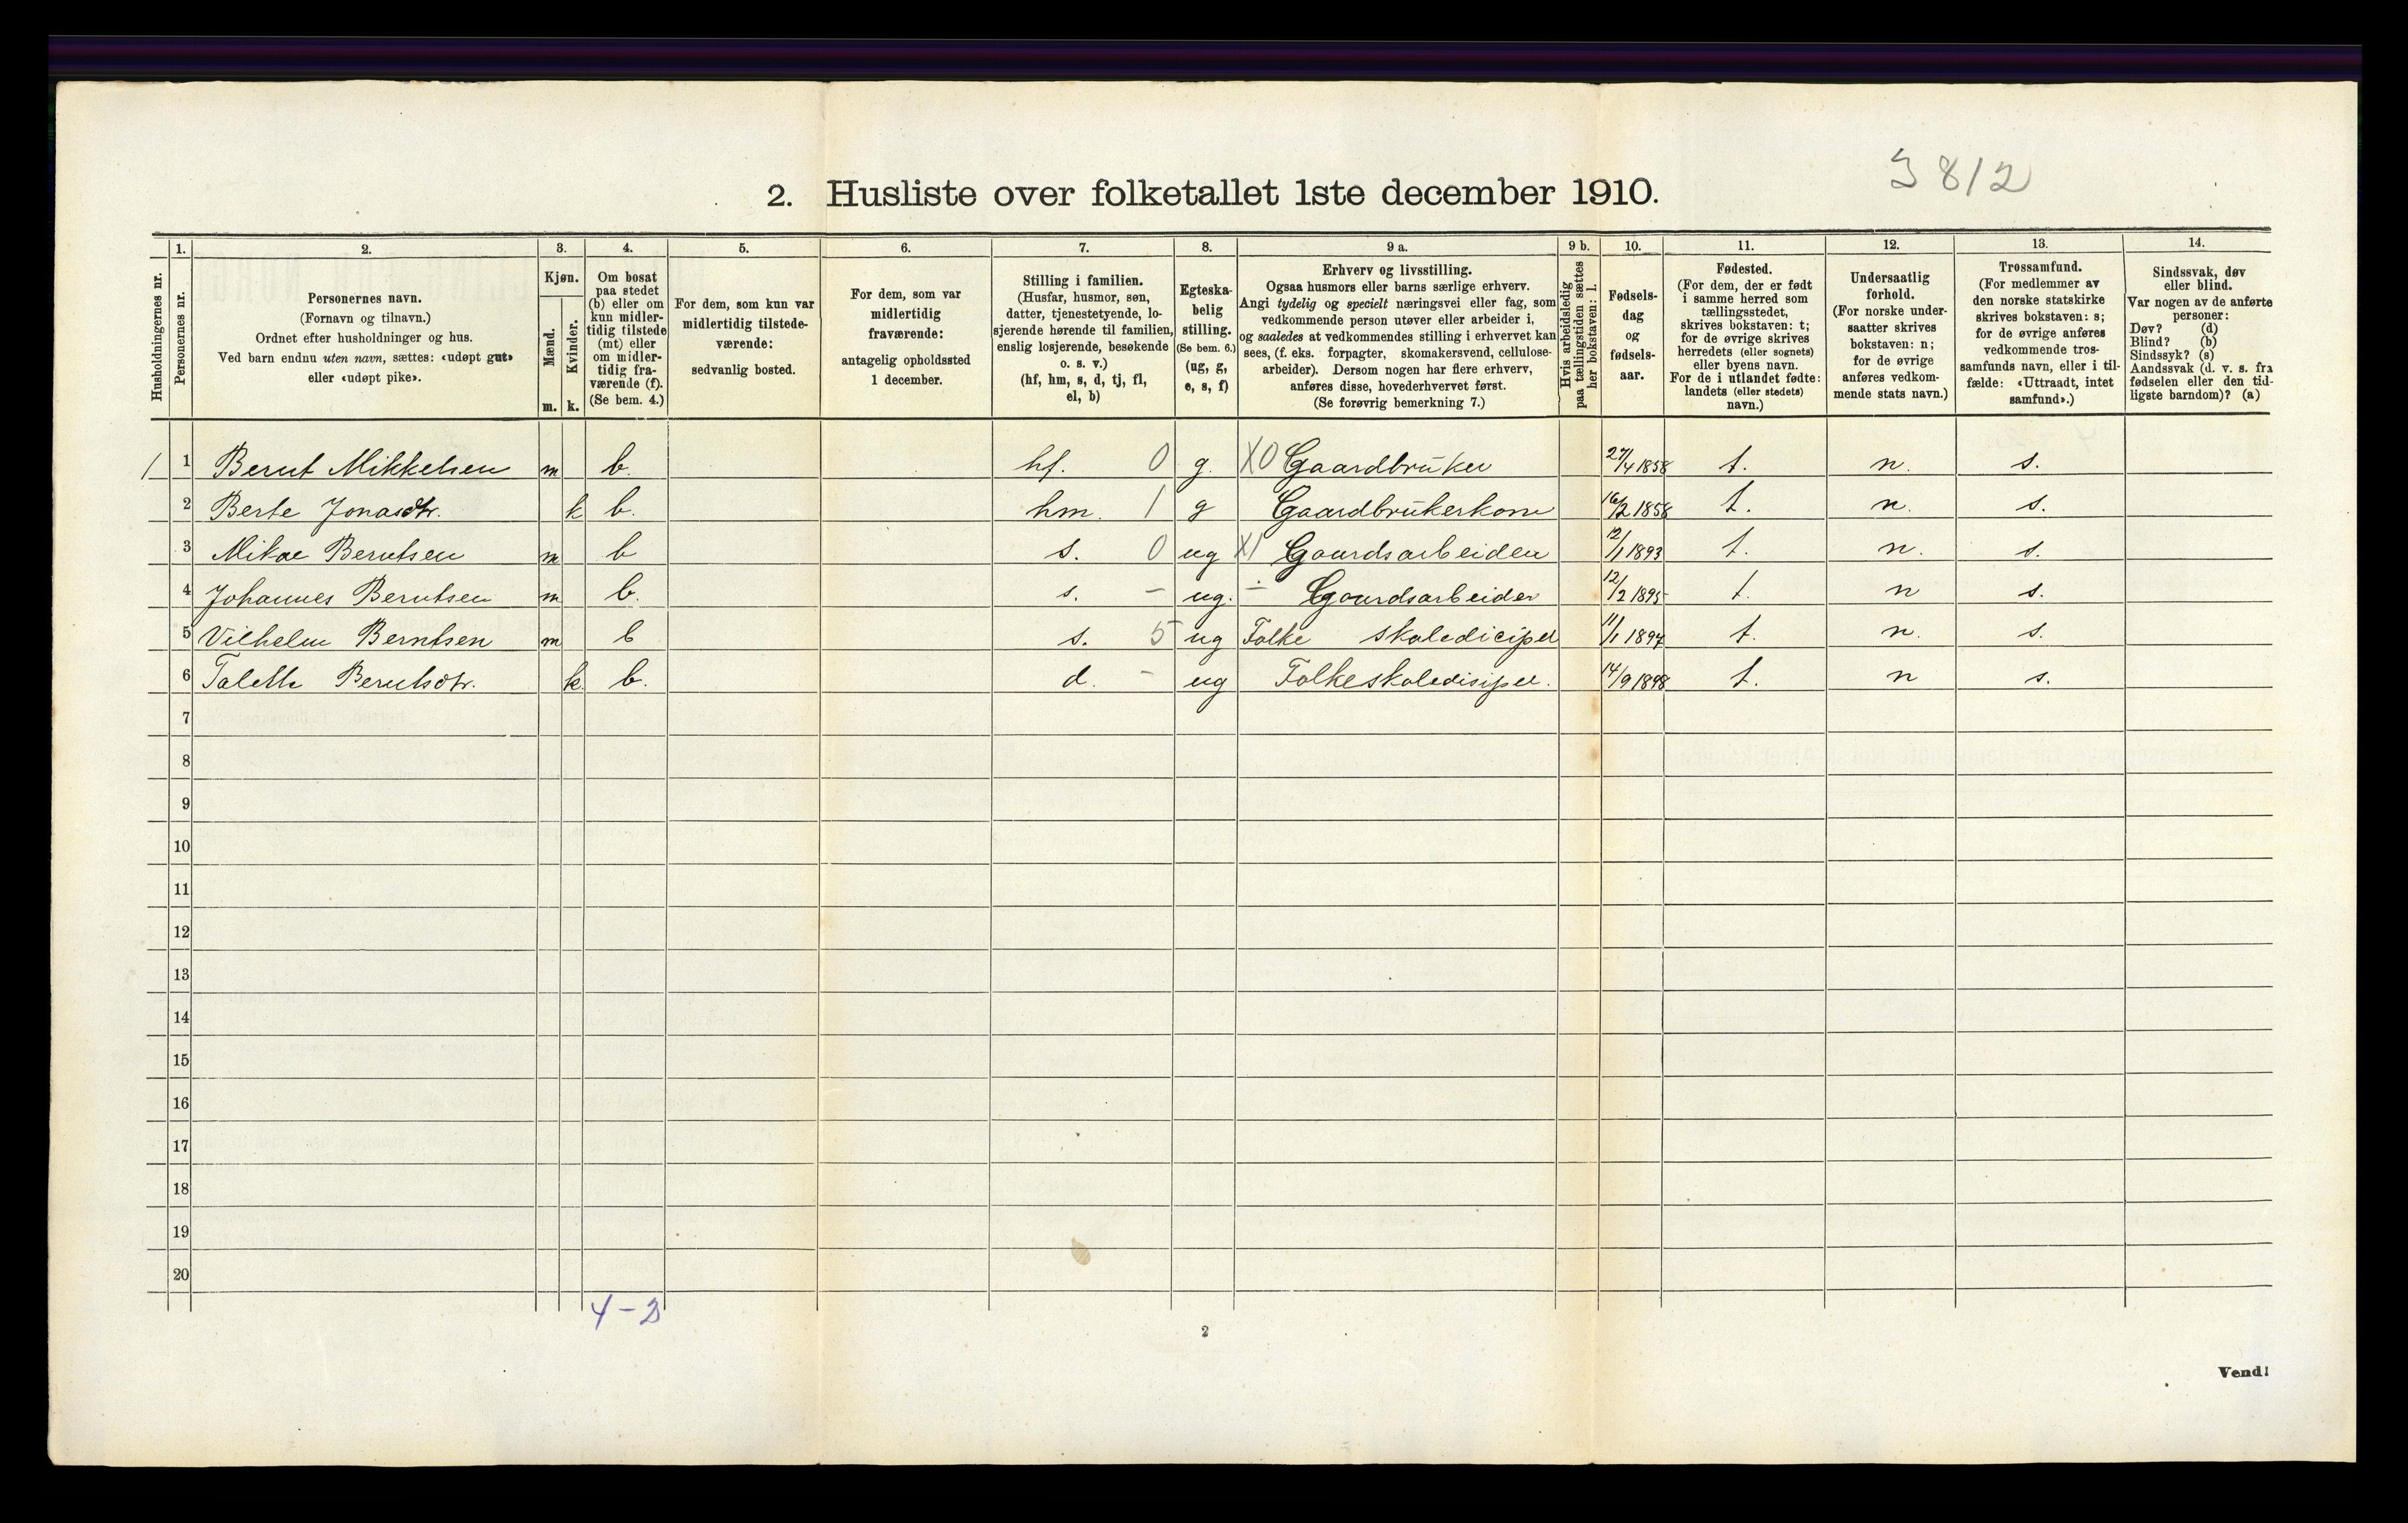 3812
2. Husliste over folketallet 1ste december 1910.
Husholdningernes nr.
1.
Personernes nr.
2.
Personernes navn.
(Fornavn og tilnavn.)
Ordnet efter husholdninger og hus.
Ved barn endnu uten navn, sættes: «udøpt gut»
eller «udøpt pike».
3.
Kjøn.
Mænd.
Kvinder.
m. k.
4.
Om bosat
paa stedet
(b) eller om
kun midler-
tidig tilstede
(mt) eller
om midler-
tidig fra-
værende (f).
(Se bem. 4.)
5.
For dem, som kun var
midlertidig tilstede-
værende:
sedvanlig bosted.
6.
For dem, som var
midlertidig
fraværende:
antagelig opholdssted
1 december.
7.
Stilling i familien.
(Husfar, husmor, søn,
datter, tjenestetyende, lo-
sjerende hørende til familien,
enslig losjerende, besøkende
o. s. v.)
(hf, hm, s, d, tj, fl,
el, b)
8.
Egteska-
belig
stilling.
(Se bem. 6.)
(ug, g,
e, s, f)
9 a.
Erhverv og livsstilling.
Ogsaa husmors eller barns særlige erhverv.
Angi tydelig og specielt næringsvei eller fag, som
vedkommende person utøver eller arbeider i,
og saaledes at vedkommendes stilling i erhvervet kan
sees, (f. eks. forpagter, skomakersvend, cellulose-
arbeider). Dersom nogen har flere erhverv,
anføres disse, hovederhvervet først.
(Se forøvrig bemerkning 7.)
9 b.
Hvis arbeidsledig
paa tællingstiden sættes
her bokstaven: l.
10.
Fødsels-
dag
og
fødsels-
aar.
11.
Fødested.
(For dem, der er født
i samme herred som
tællingsstedet,
skrives bokstaven: t;
for de øvrige skrives
herredets (eller sognets)
eller byens navn.
For de i utlandet fødte:
landets (eller stedets)
navn.)
12.
Undersaatlig
forhold.
(For norske under-
saatter skrives
bokstaven: n;
for de øvrige
anføres vedkom-
mende stats navn.)
13.
Trossamfund.
(For medlemmer av
den norske statskirke
skrives bokstaven: s;
for de øvrige anføres
vedkommende tros-
samfunds navn, eller i til-
fælde: «Uttraadt, intet
samfund».)
14.
Sindssvak, døv
eller blind.
Var nogen av de anførte
personer:
Døv? (d)
Blind? (b)
Sindssyk? (s)
Aandssvak (d. v. s. fra
fødselen eller den tid-
ligste barndom)? (a)
1 1 Bernt Mikkelsen m b. hf. 0 g. X0 Gaardbruker 27/4 1858 t. n. s.
2 Berte Jonasdtr. k b. hm. 1 g Gaardbrukerkone 16/2 1858 t. n. s.
3 Mikae Berntsen m b s. 0 ug X1 Gaardsarbeider 12/1 1893 t. n. s.
4 Johannes Berntsen m b. s. - ug. - Gaardsarbeider 12/2 1895 t. n s.
5 Vilhelm Berntsen m b s. 5 ug Folke skoledicipel 11/1 1897 t. n. s.
6 Talette Berntsdtr. k. b. d. - ug Folkeskoledisipel. 14/9 1898 t. n s.
7
8
9
10
11
12
13
14
15
16
17
18
19
20
4-2
2
Vend!